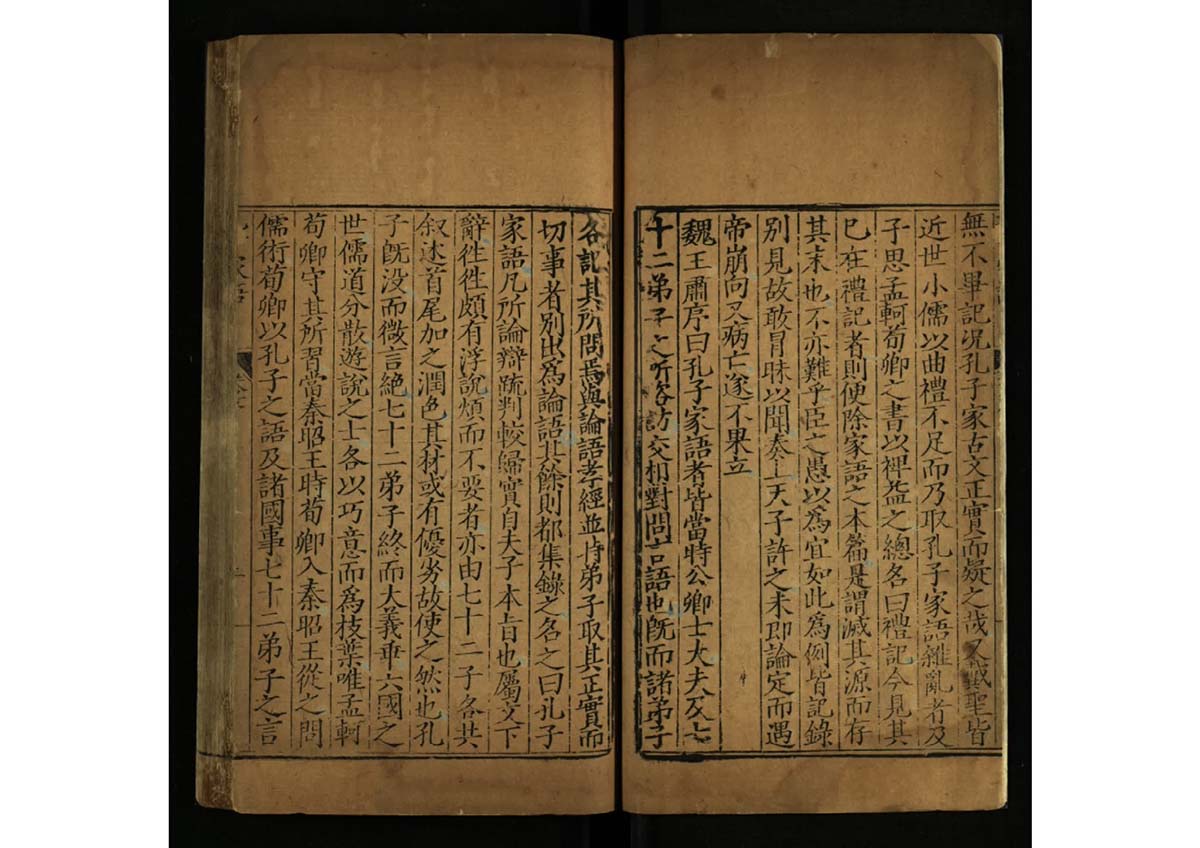 無不畢記況孔子家古文正實而疑之哉又戴聖皆
近世小儒以曲禮不足而乃取孔子家語雜亂者及
子思孟軻荀卿之書以裨益之總名曰禮記今見其
已在禮記者則便除家語之本篇是謂滅其源而存
其末也不亦難乎臣之愚以為宜如此為例皆記錄
別見故敢冒昧以聞奏上天子許之未即論定而遇
帝崩向又病亡遂不果立
魏王肅序曰孔子家語者皆當時公卿士大夫及七
十二弟子之所咨訪交相對問言語也旣而諸弟子
各記其所問焉與論語孝經並時弟子取其正實而
切事者別出爲論語其餘則都集錄之名之曰孔子
家語凡所論辯疏判較歸實自夫子本旨也屬文下
辭徃徃頗有浮說煩而不要者亦由七十二子各共
叙述首尾加之潤色其材或有優劣故使之然也孔
子旣沒而微言絶七十二弟子終而大義乖六國之
世儒道分散遊說之士各以巧意而爲枝葉唯孟軻
荀卿守其所習當秦昭王時荀卿入秦昭王從之問
儒術荀卿以孔子之語及諸國事七十二弟子之言
家語